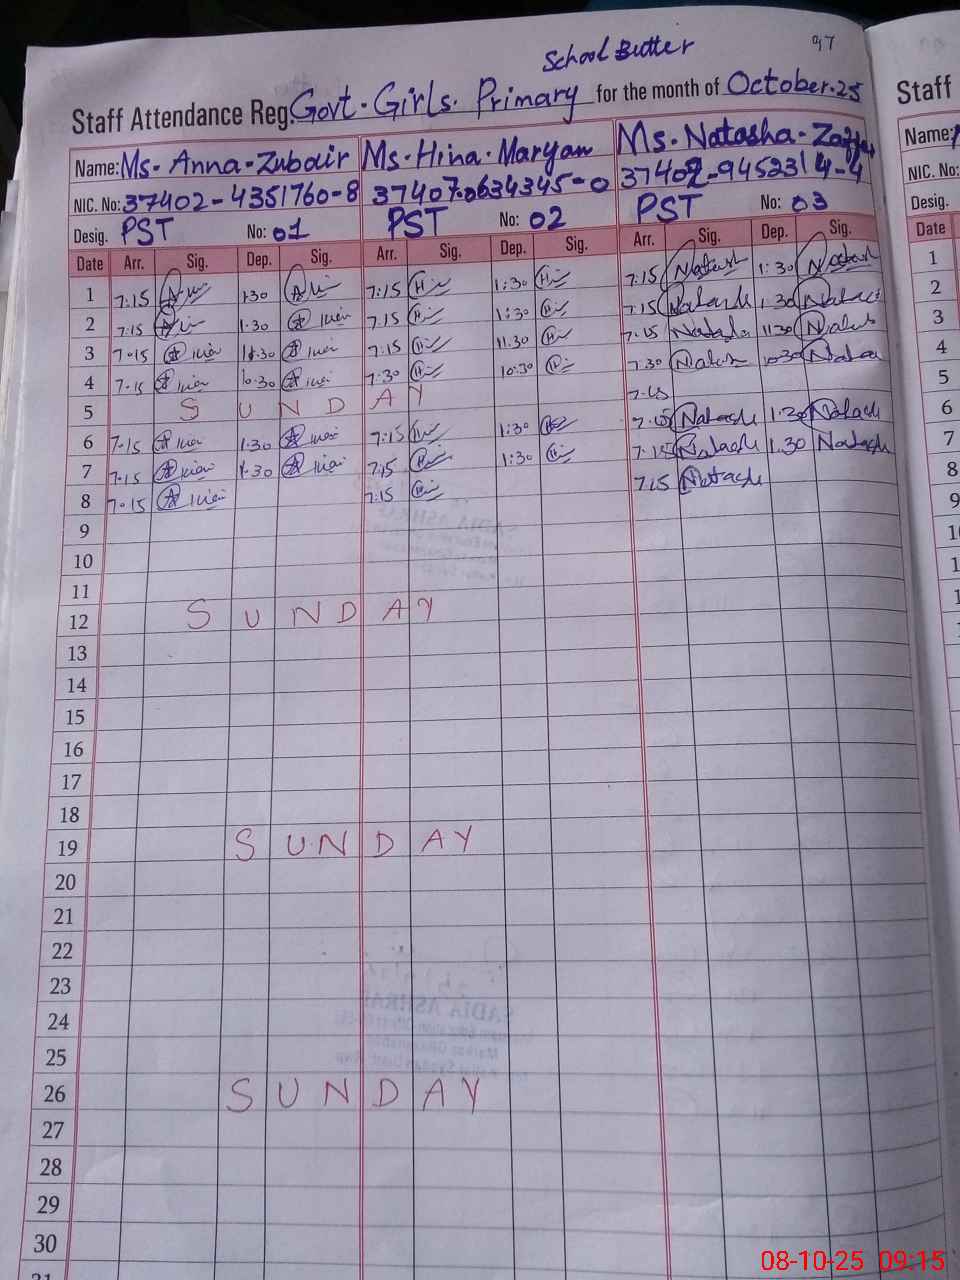 School Butter
97
Staff Attendance Reg. Govt. Girls. Primary for the month of October.25
Staff
Name: Ms. Anna Zubair Ms. Hina. Maryam Ms. Natasha
Name:
NIC. No: 37402-4351760-8 37407.0634345-0 37402-9452314-4
NIC. No:
Desig. PST No: 01 PST No: 02 PST No: 03
Desig.
Date Arr. Sig. Dep. Sig. Arr. Sig. Dep. Sig. Arr. Sig. Dep. Sig.
Date
1 7:15 1:30 7:15 1:30 7:15 Natash 1:30 Natash
1
2 7:15 1.30 7:15 1:30 7:15 Natash 1.30
2
3 7.15 11.30 7:15 11.30 7.15 11:30
3
4 7.15 10.30 7:30 10:30 7:30 10:30
4
5 SUNDAY 7.15
5
6 7.15 1.30 7:15 1:30 7.15 Natash 1:30 Natash
6
7 7.15 1.30 7:15 1:30 7.15 Natash 1.30 Natash
7
8 7.15 7:15 7:15 Natash
8
9
9
10
11
12 SUNDAY
13
14
15
16
17
18
19 SUNDAY
20
21
22
23
24
25
26 SUNDAY
27
28
29
30
08-10-25 09:15